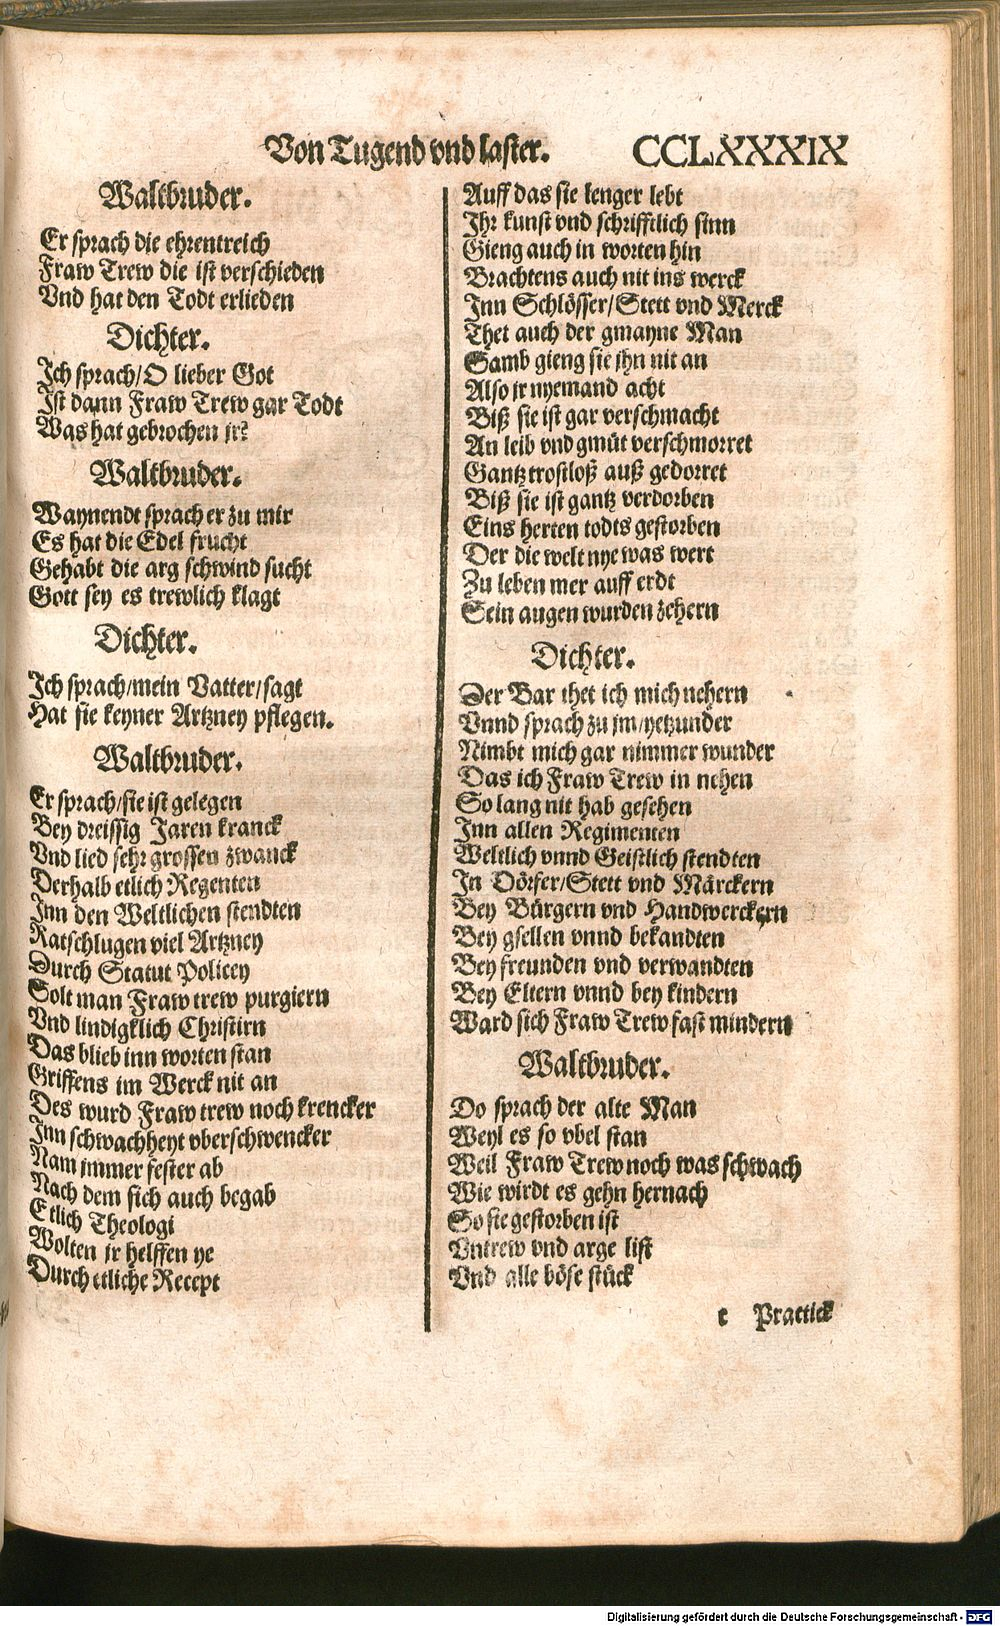 Von Tugend vnd laster. CCLXXXIX
Waltbruder.
Er sprach die ehrentreich
Fraw Trew die ist verschieden
Vnd hat den Todt erlieden
Dichter.
Ich sprach/O lieber Got
Ist dann Fraw Trew gar Todt
Was hat gebrochen jr?
Waltbruder.
Waynendt sprach er zu mir
Es hat die Edel frucht
Gehabt die arg schwind sucht
Gott sey es trewlich klagt
Dichter.
Ich sprach/mein Vatter/sagt
Hat sie keyner Artzney pflegen.
Waltbruder.
Er sprach/sie ist gelegen
Bey dreissig Jaren kranck
Vnd lied sehr grossen zwanck
Derhalb etlich Regenten
Inn den Weltlichen stendten
Ratschlugen viel Artzney
Durch Statut Policey
Solt man Fraw trew purgiern
Vnd lindigklich Christirn
Das blieb inn worten stan
Griffens im Werck nit an
Des wurd Fraw trew noch krencker
Inn schwachheyt vberschwencker
Nam jmmer fester ab
Nach dem sich auch begab
Etlich Theologi
Wolten jr helffen ye
Durch etliche Recept
Auff das sie lenger lebt
Ihr kunst vnd schrifftlich sinn
Gieng auch in worten hin
Brachtens auch nit ins werck
Inn Schlösser/Stett vnd Merck
Thet auch der gmayne Man
Samb gieng sie jhn nit an
Also jr nyemand acht
Biß sie ist gar verschmacht
An leib vnd gmüt verschmorret
Gantz trostloß auß gedorret
Biß sie ist gantz verdorben
Eins herten todts gestorben
Der die welt nye was wert
Zu leben mer auff erdt
Sein augen wurden zehern
Dichter.
Der Bar thet ich mich nehern
Vnnd sprach zu jm/yetzunder
Nimbt mich gar nimmer wunder
Das ich Fraw Trew in nehen
So lang nit hab gesehen
Inn allen Regimenten
Weltlich vnnd Geistlich stendten
In Dörfer/Stett vnd Märckern
Bey Bürgern vnd Handwerckern
Bey gsellen vnnd bekandten
Bey freunden vnd verwandten
Bey Eltern vnnd bey kindern
Ward sich Fraw Trew fast mindern
Waltbruder.
Do sprach der alte Man
Weyl es so vbel stan
Weil Fraw Trew noch was schwach
Wie wirdt es gehn hernach
So sie gestorben ist
Vntrew vnd arge list
Vnd alle böse stück
c Practick
Digitalisierung gefördert durch die Deutsche Forschungsgemeinschaft - DFG